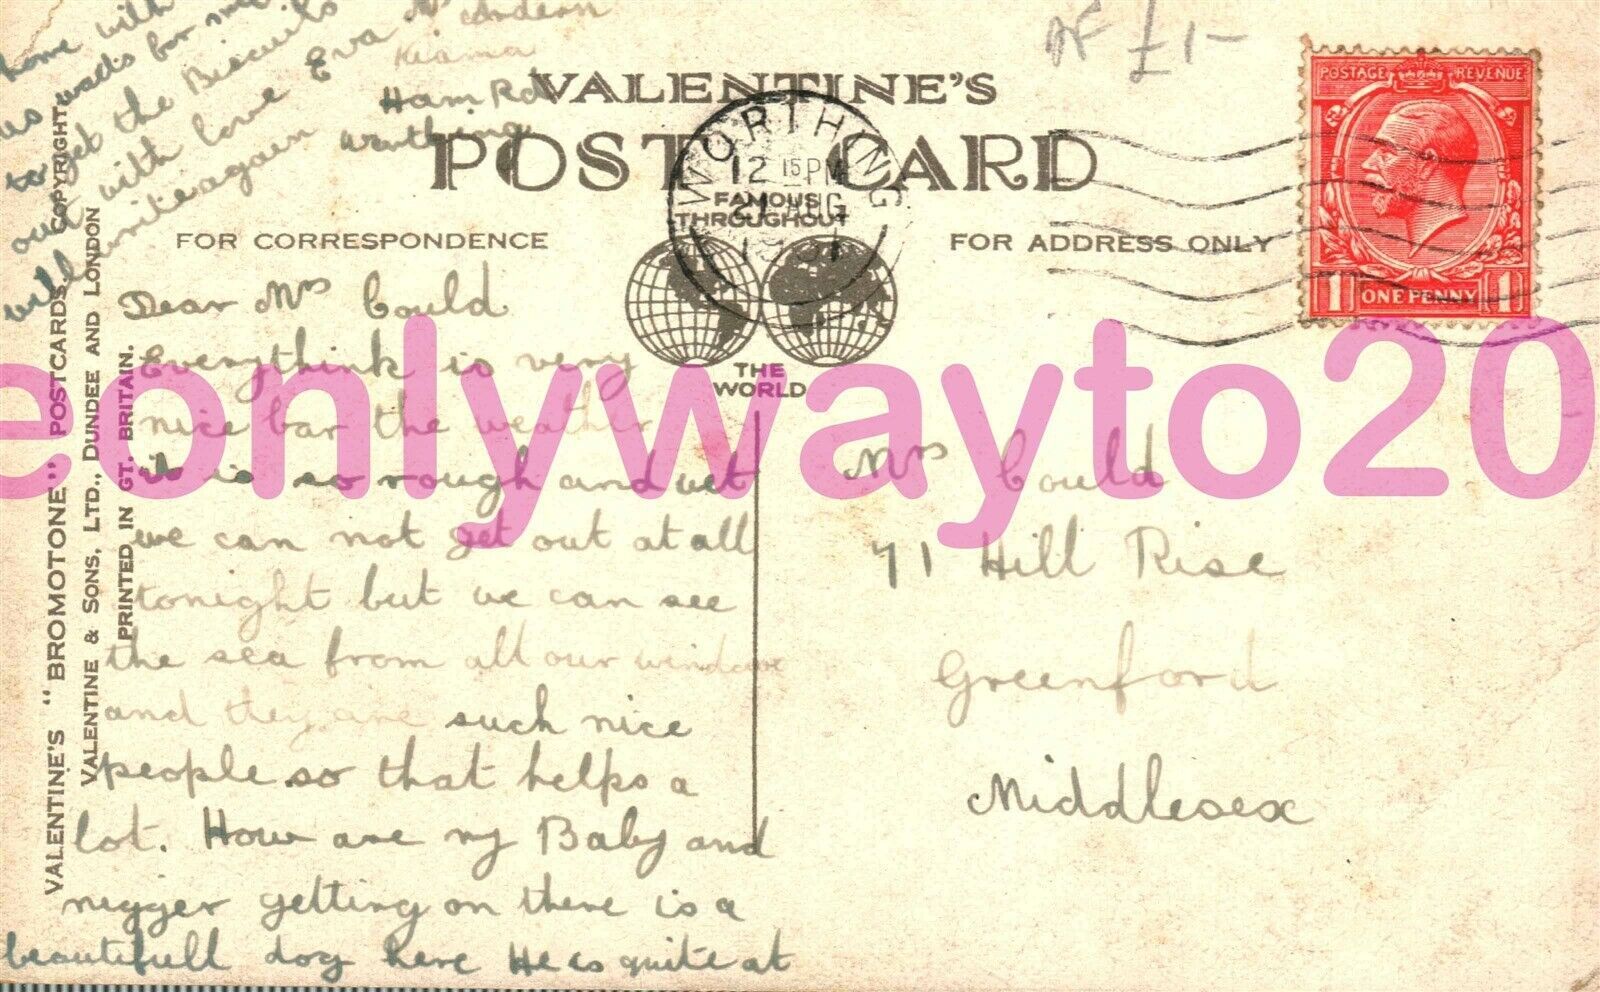 home with
us wads for me
to get the Biscuits
out with love Eva
will write again
Kiama
Ham Rd
Worthing
VALENTINE'S
POST CARD
FAMOUS
THROUGHOUT
THE
WORLD
FOR CORRESPONDENCE
FOR ADDRESS ONLY
WORTHING
12 15 PM
21 AUG
1931
POSTAGE REVENUE
1 ONE PENNY 1
£1-
VALENTINE'S "BROMOTONE" POSTCARDS, COPYRIGHT.
VALENTINE & SONS, LTD., DUNDEE AND LONDON
PRINTED IN GT. BRITAIN.
Dear Mrs Could
Everythink is very
nice bar the weather
it is so rough and wet
we can not get out at all
tonight but we can see
the sea from all our window
and they are such nice
people so that helps a
lot. How are my Baby and
nigger getting on there is a
beautifull dog here He is quite at
Mrs Could
71 Hill Rise
Greenford
Middlesex
eonlywayto20